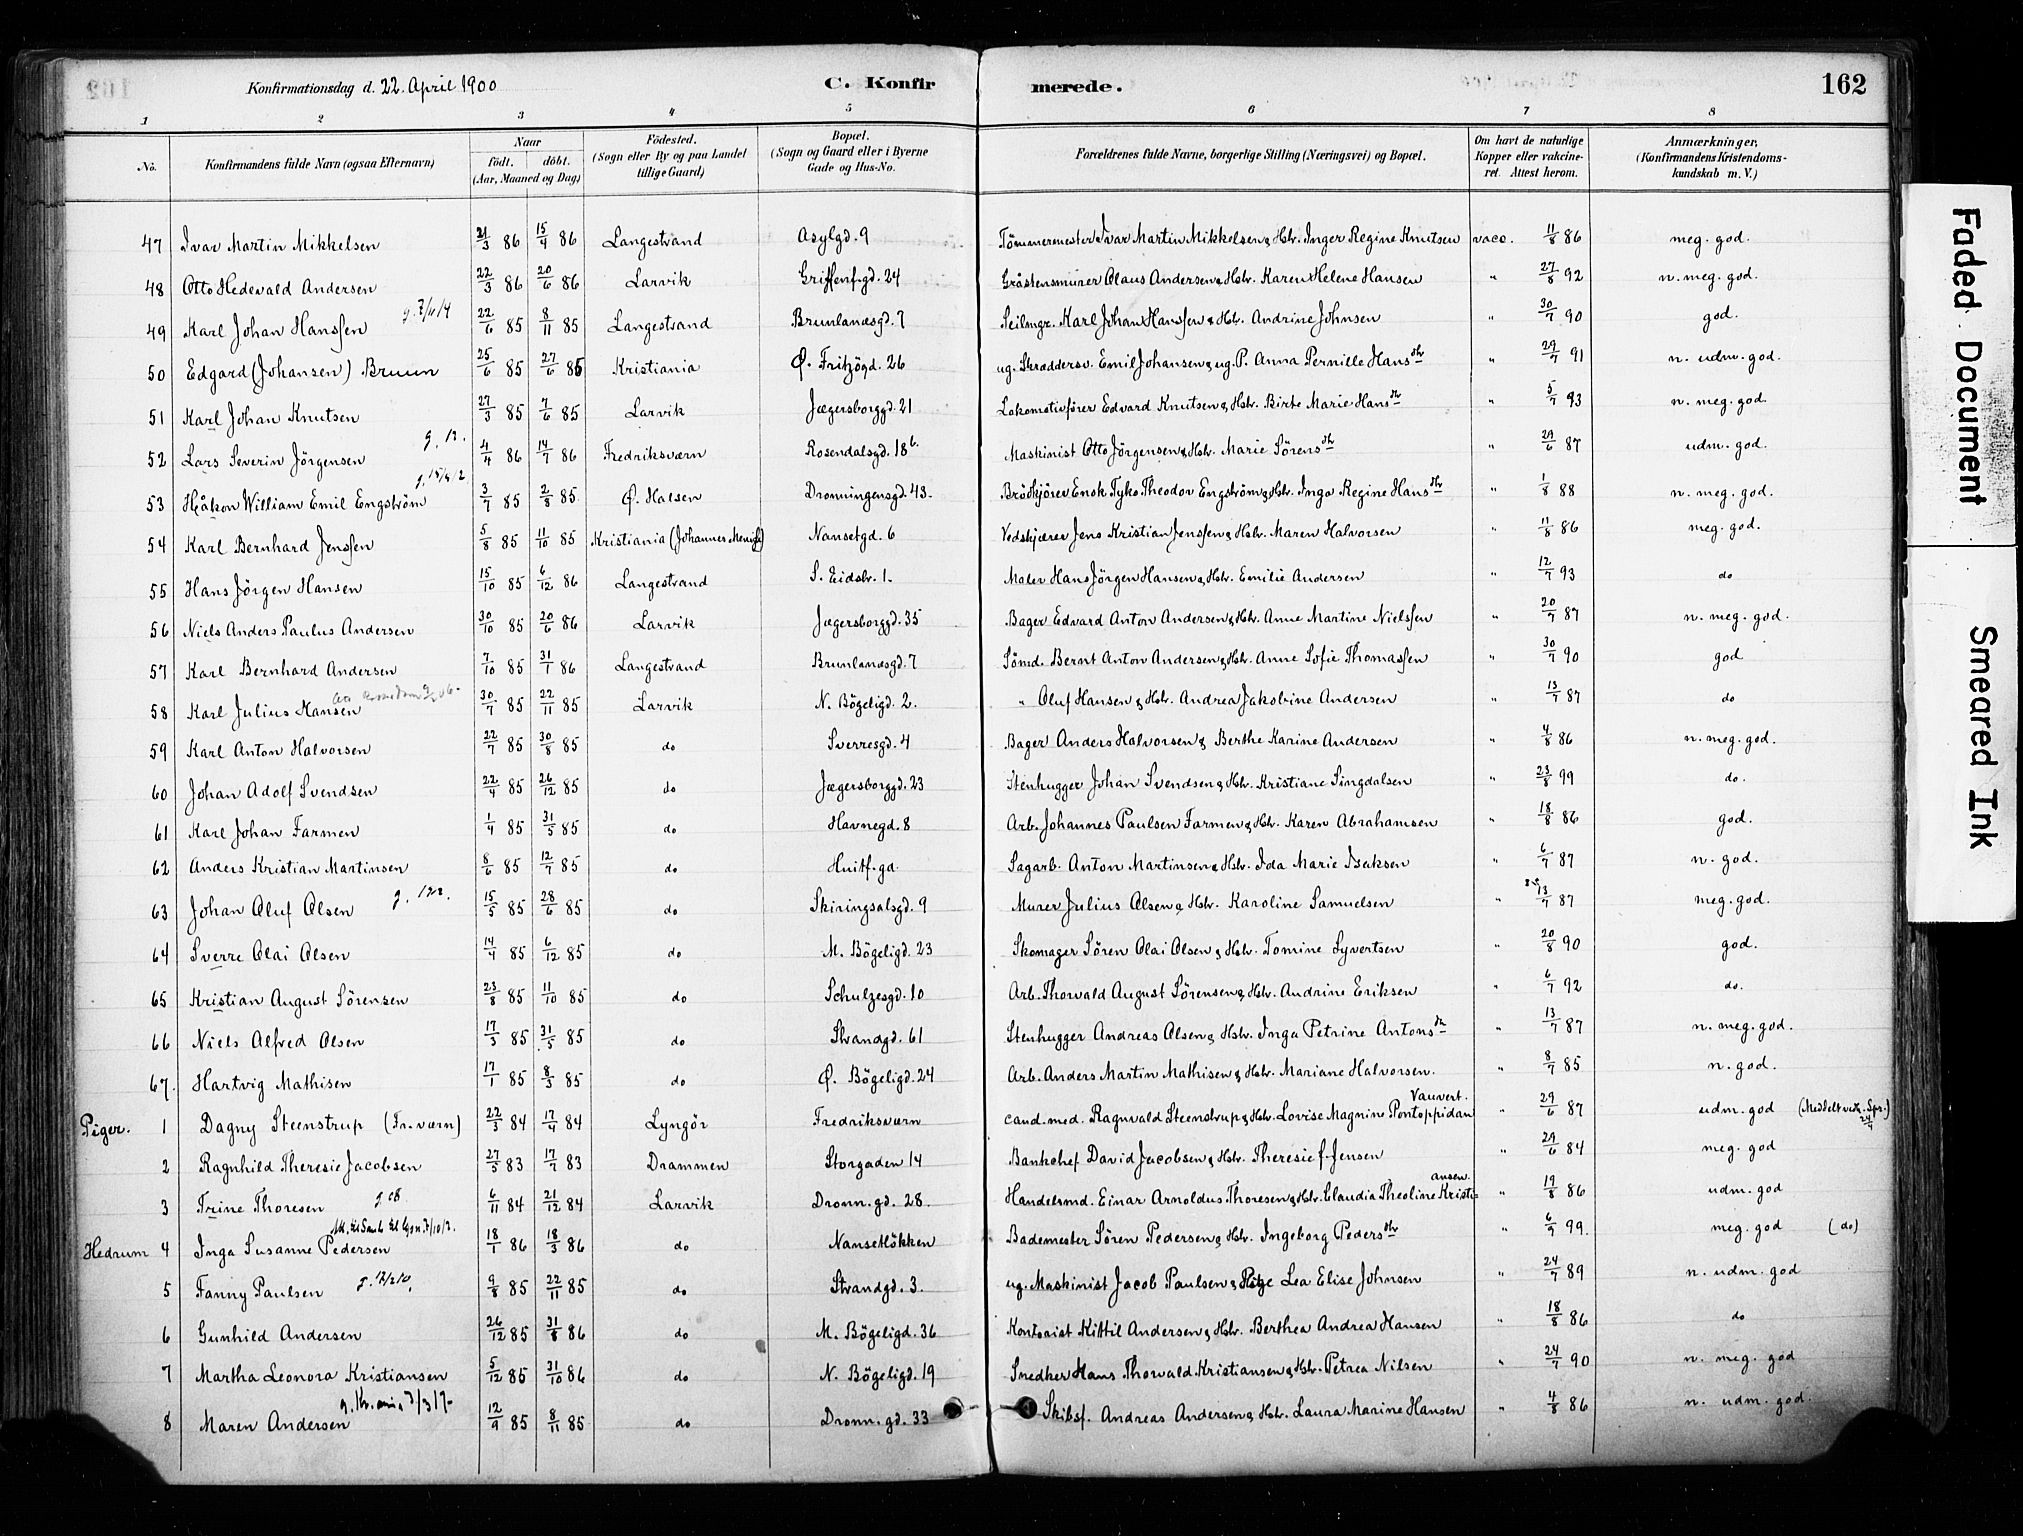 Konfirmationsdag d. 22. April 1900 C. Konfir merede. 162
1 2 3 4 5 6 7 8
No. Konfirmandens fulde Navn (ogsaa Efternavn) Naar födt. döbt. (Aar, Maaned og Dag) Födested. (Sogn eller By og paa Landet tillige Gaard) Bopæl. (Sogn og Gaard eller i Byerne Gade og Hus-No. Forældrenes fulde Navne, borgerlige Stilling (Næringsvei) og Bopæl. Om havt de naturlige Kopper eller vakcineret. Attest herom. Anmærkninger, (Konfirmandens Kristendomskundskab m. V.)
47 Ivar Martin Mikkelsen 21/3 86 15/4 86 Langestrand Asylgd. 9 Tömmermester Ivar Martin Mikkelsen & Hstr. Inger Regine Knutsen vacc. 11/8 86 meg. god.
48 Otto Hedevald Andersen 22/3 86 20/6 86 Larvik Griffenf.gd. 24 Gråstensmurer Olaus Andersen & Hstr. Karen Helene Hansen " 27/8 92 n. meg. god.
49 Karl Johan Hanssen 22/6 85 8/11 85 Langestrand Brunlanæsgd. 7 Seilmgr. Karl Johan Hanssen & Hstr. Andrine Johnsen " 30/7 90 god.
50 Edgard (Johansen) Bruun 25/6 85 27/6 85 Kristiania Ø. Fritzögd. 26 ug. Skræddersv. Emil Johansen & ug. P. Anna Pernille Hansdtr " 29/7 91 n. udm. god.
51 Karl Johan Knutsen 27/3 85 7/6 85 Larvik Jægersborggd. 21 Lokomotivförer Edvard Knutsen & Hstr. Birte Marie Hansdtr " 5/7 93 n. meg. god.
52 Lars Severin Jörgensen g. 12. 4/4 86 14/7 86 Fredriksværn Rosendalsgd. 18b. Maskinist Otto Jörgensen & Hstr. Marie Sörensdtr " 29/6 87 udm. god.
53 Håkon William Emil Engström 3/7 85 2/8 85 Ø. Halsen Dronningensgd. 43. Brödkjörer Enok Tyko Theodor Engström & Hstr. Inga Regine Hansdtr " 1/8 88 n. meg. god.
54 Karl Bernhard Jenssen 5/8 85 11/10 85 Kristiania (Johannes Menigh) Nansetgd. 6 Vedskjærer Jens Kristian Jenssen & Hstr. Maren Halvorsen " 11/8 86 meg. god.
55 Hans Jörgen Hansen 15/10 85 6/12 86 Langestrand S. Eidsbr. 1. Maler Hans Jörgen Hansen & Hstr. Emilie Andersen " 12/7 93 do
56 Niels Anders Paulus Andersen 30/10 85 20/6 86 Larvik Jægersborggd. 35 Bager Edvard Anton Andersen & Hstr. Anne Martine Nielssen " 20/7 87 n. meg. god.
57 Karl Bernhard Andersen 7/10 85 31/1 86 Langestrand Brunlanæsgd. 7 Sömd. Bernt Anton Andersen & Hstr. Anne Sofie Thomassen " 30/7 90 god
58 Karl Julius Hansen 30/7 85 22/11 85 Larvik N. Bögeligd. 2. " Oluf Hansen & Hstr. Andrea Jakobine Andersen " 13/7 87 do
59 Karl Anton Halvorsen 22/7 85 30/8 85 do Sverresgd. 4 Bager Anders Halvorsen & Berthe Karine Andersen " 4/8 86 n. meg. god.
60 Johan Adolf Svendsen 22/4 85 26/12 85 do Jægersborggd. 23 Stenhugger Johan Svendsen & Hstr. Kristiane Singdalsen " 23/8 99 do.
61 Karl Johan Farmen 1/4 85 31/5 85 do Havnegd. 8 Arb. Johannes Paulsen Farmen & Hstr. Karen Abrahamsen " 18/8 86 god.
62 Anders Kristian Martinsen 8/6 85 12/7 85 do Huitf.gd. Sagarb. Anton Martinsen & Hstr. Ida Marie Isaksen " 6/7 87 n. god.
63 Johan Oluf Olsen g. 122. 15/5 85 28/6 85 do Skiringsalsgd. 9 Murer Julius Olsen & Hstr. Karoline Samuelsen 13/7 87 meg. god.
64 Sverre Olai Olsen 14/4 85 6/12 85 do M. Bögeligd. 23 Skomager Sören Olai Olsen & Hstr. Tomine Syvertsen " 20/8 90 god.
65 Kristian August Sörensen 23/8 85 11/10 85 do Schultzesgd. 10 Arb. Thorvald August Sörensen & Hstr. Andrine Eriksen " 6/7 92 do.
66 Niels Alfred Olsen 17/3 85 31/5 85 do Strandgd. 61 Stenhugger Andreas Olsen & Hstr. Inga Petrine Antonsdtr " 13/7 87 n. meg. god.
67. Hartvig Mathisen 17/1 85 8/3 85 do Ø. Bögeligd. 24 Arb. Anders Martin Mathisen & Hstr. Mariane Halvorsen. " 8/7 85 n. god.
Piger. 1 Dagny Steenstrup (Fr.værn) 22/3 84 17/4 84 Lyngör Fredriksværn cand. med. Ragnvald Steenstrup & Hstr. Lovise Magnine Vauvert. Pontoppidan " 29/6 87 udm. god (Meddelt vedk. Spr.) 24/4
2 Ragnhild Theresie Jacobsen 27/5 83 17/7 83 Drammen Storgaden 14 Bankchef David Jacobsen & Hstr. Theresie f. Jensen " 29/6 84 meg. god
3 Trine Thoresen g 08. 6/11 84 21/12 84 Larvik Dronn. gd. 28. Handelsmd. Einar Arnoldus Thoresen & Hstr. Claudia Theoline Kristiansen. " 19/8 86 udm. god
Hedrum 4 Inga Susanne Pedersen 18/1 86 18/3 86 do Nansetlökken Bademester Sören Pedersen & Hstr. Ingeborg Pedersdtr " 6/9 99. meg. god (do)
5 Fanny Paulsen g. 12/2 10. 9/8 85 22/11 85 do Strandgd. 3. ug. Maskinist Jacob Paulsen & Pige Lea Elise Johnsen " 24/7 89 n. udm. god
6 Gunhild Andersen 26/12 85 31/8 86 do M. Bögeligd. 36 Kontorist Kittil Andersen & Hstr. Berthea Andrea Hansen " 18/8 86 do
7 Martha Leonora Kristiansen 5/12 85 31/10 86 do N. Bögeligd. 19 Snedker Hans Thorvald Kristiansen & Hstr. Petrea Nilsen " 24/7 90 n. meg. god
8 Maren Andersen 12/9 85 8/11 85 do Dronn. gd. 33 Skibsf. Andreas Andersen & Hstr. Laura Marine Hansen " 4/8 86 n. udm. god.
Faded Document
Smeared Ink